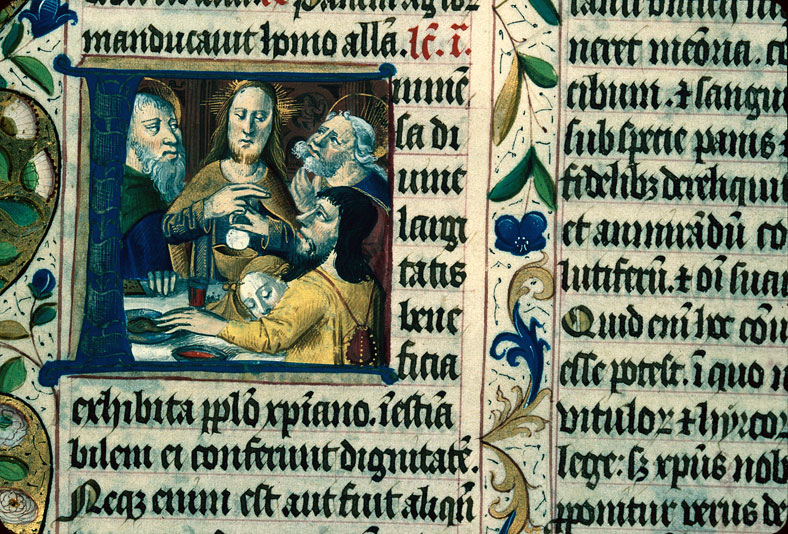 manducauit hōmo allā. lc̄. ī.
Immē
sa di
uine
largi
tatis
bene
ficia
exhibita pplō xp̄iano. īestīa
bilem ei conferunt dignitatē.
Neqꝫ enim est aut fuit aliqn̄
neret meōria. co
cibum. ⁊ sangui
sub specie panis ⁊
fidelibꝫ dereliqui
et ammirādū co
lutiferū. ⁊ oī suaui
Quid enī hoc cōui
esse potest. ī quo n
vituloꝝ ⁊ hyrcoꝝ
lege: sꝫ xp̄us nob
pponitur verus de